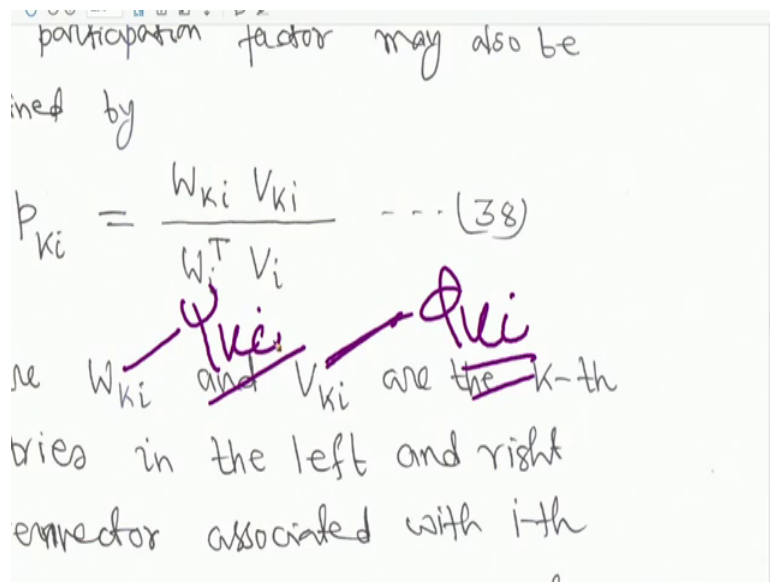 participation factor may also be
ined by
P_Ki = W_Ki V_Ki / W_i^T V_i ---- (38)
ψ_Ki φ_Ki
re W_Ki and V_Ki are the K-th
ries in the left and right
envector associated with i-th